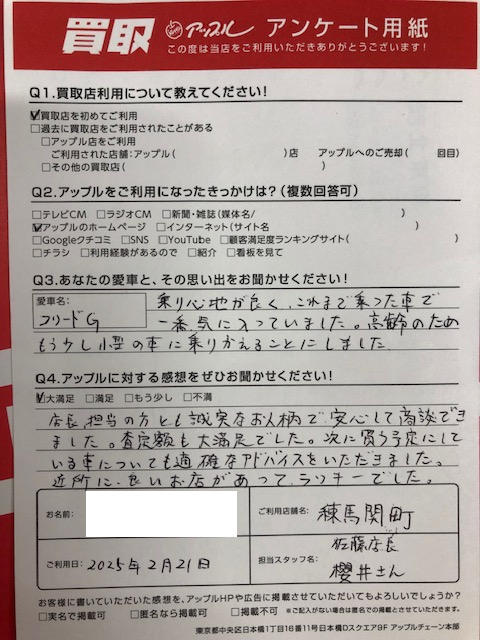 買取 アップル アンケート用紙
この度は当店をご利用いただきありがとうございます!
Q1.買取店利用について教えてください!
☑買取店を初めてご利用
□過去に買取店をご利用されたことがある
□アップル店をご利用
ご利用された店舗:アップル( )店 アップルへのご売却( 回目)
□その他の買取店( )
Q2.アップルをご利用になったきっかけは?(複数回答可)
□テレビCM □ラジオCM □新聞・雑誌(媒体名/ )
☑アップルのホームページ □インターネット(サイト名 )
□Googleクチコミ □SNS □YouTube □顧客満足度ランキングサイト( )
□チラシ □利用経験があるので □紹介 □看板を見て
Q3.あなたの愛車と、その思い出をお聞かせください!
愛車名:
フリードG
乗り心地が良く、これまで乗った車で
一番気に入っていました。高齢のため
もう少し小型の車に乗りかえることにしました
Q4.アップルに対する感想をぜひお聞かせください!
☑大満足 □満足 □もう少し □不満
店長、担当の方とも誠実なお人柄で安心して商談でき
ました。査定額も大満足でした。次に買う予定にして
いる車についても適確なアドバイスをいただきました。
近所に、良いお店があって、ラッキーでした。
お名前:
ご利用店舗名:
練馬関町
ご利用日:2025年2月21日
担当スタッフ名:
佐藤店長
櫻井さん
お客様に書いていただいた感想を、アップルHPや広告に掲載させていただいてもよろしいでしょうか?
□実名で掲載可 □匿名なら掲載可 □掲載不可 ※ご記入がない場合は匿名での掲載とさせていただきます。
東京都中央区日本橋1丁目16番11号日本橋Dスクエア9F アップルチェーン本部